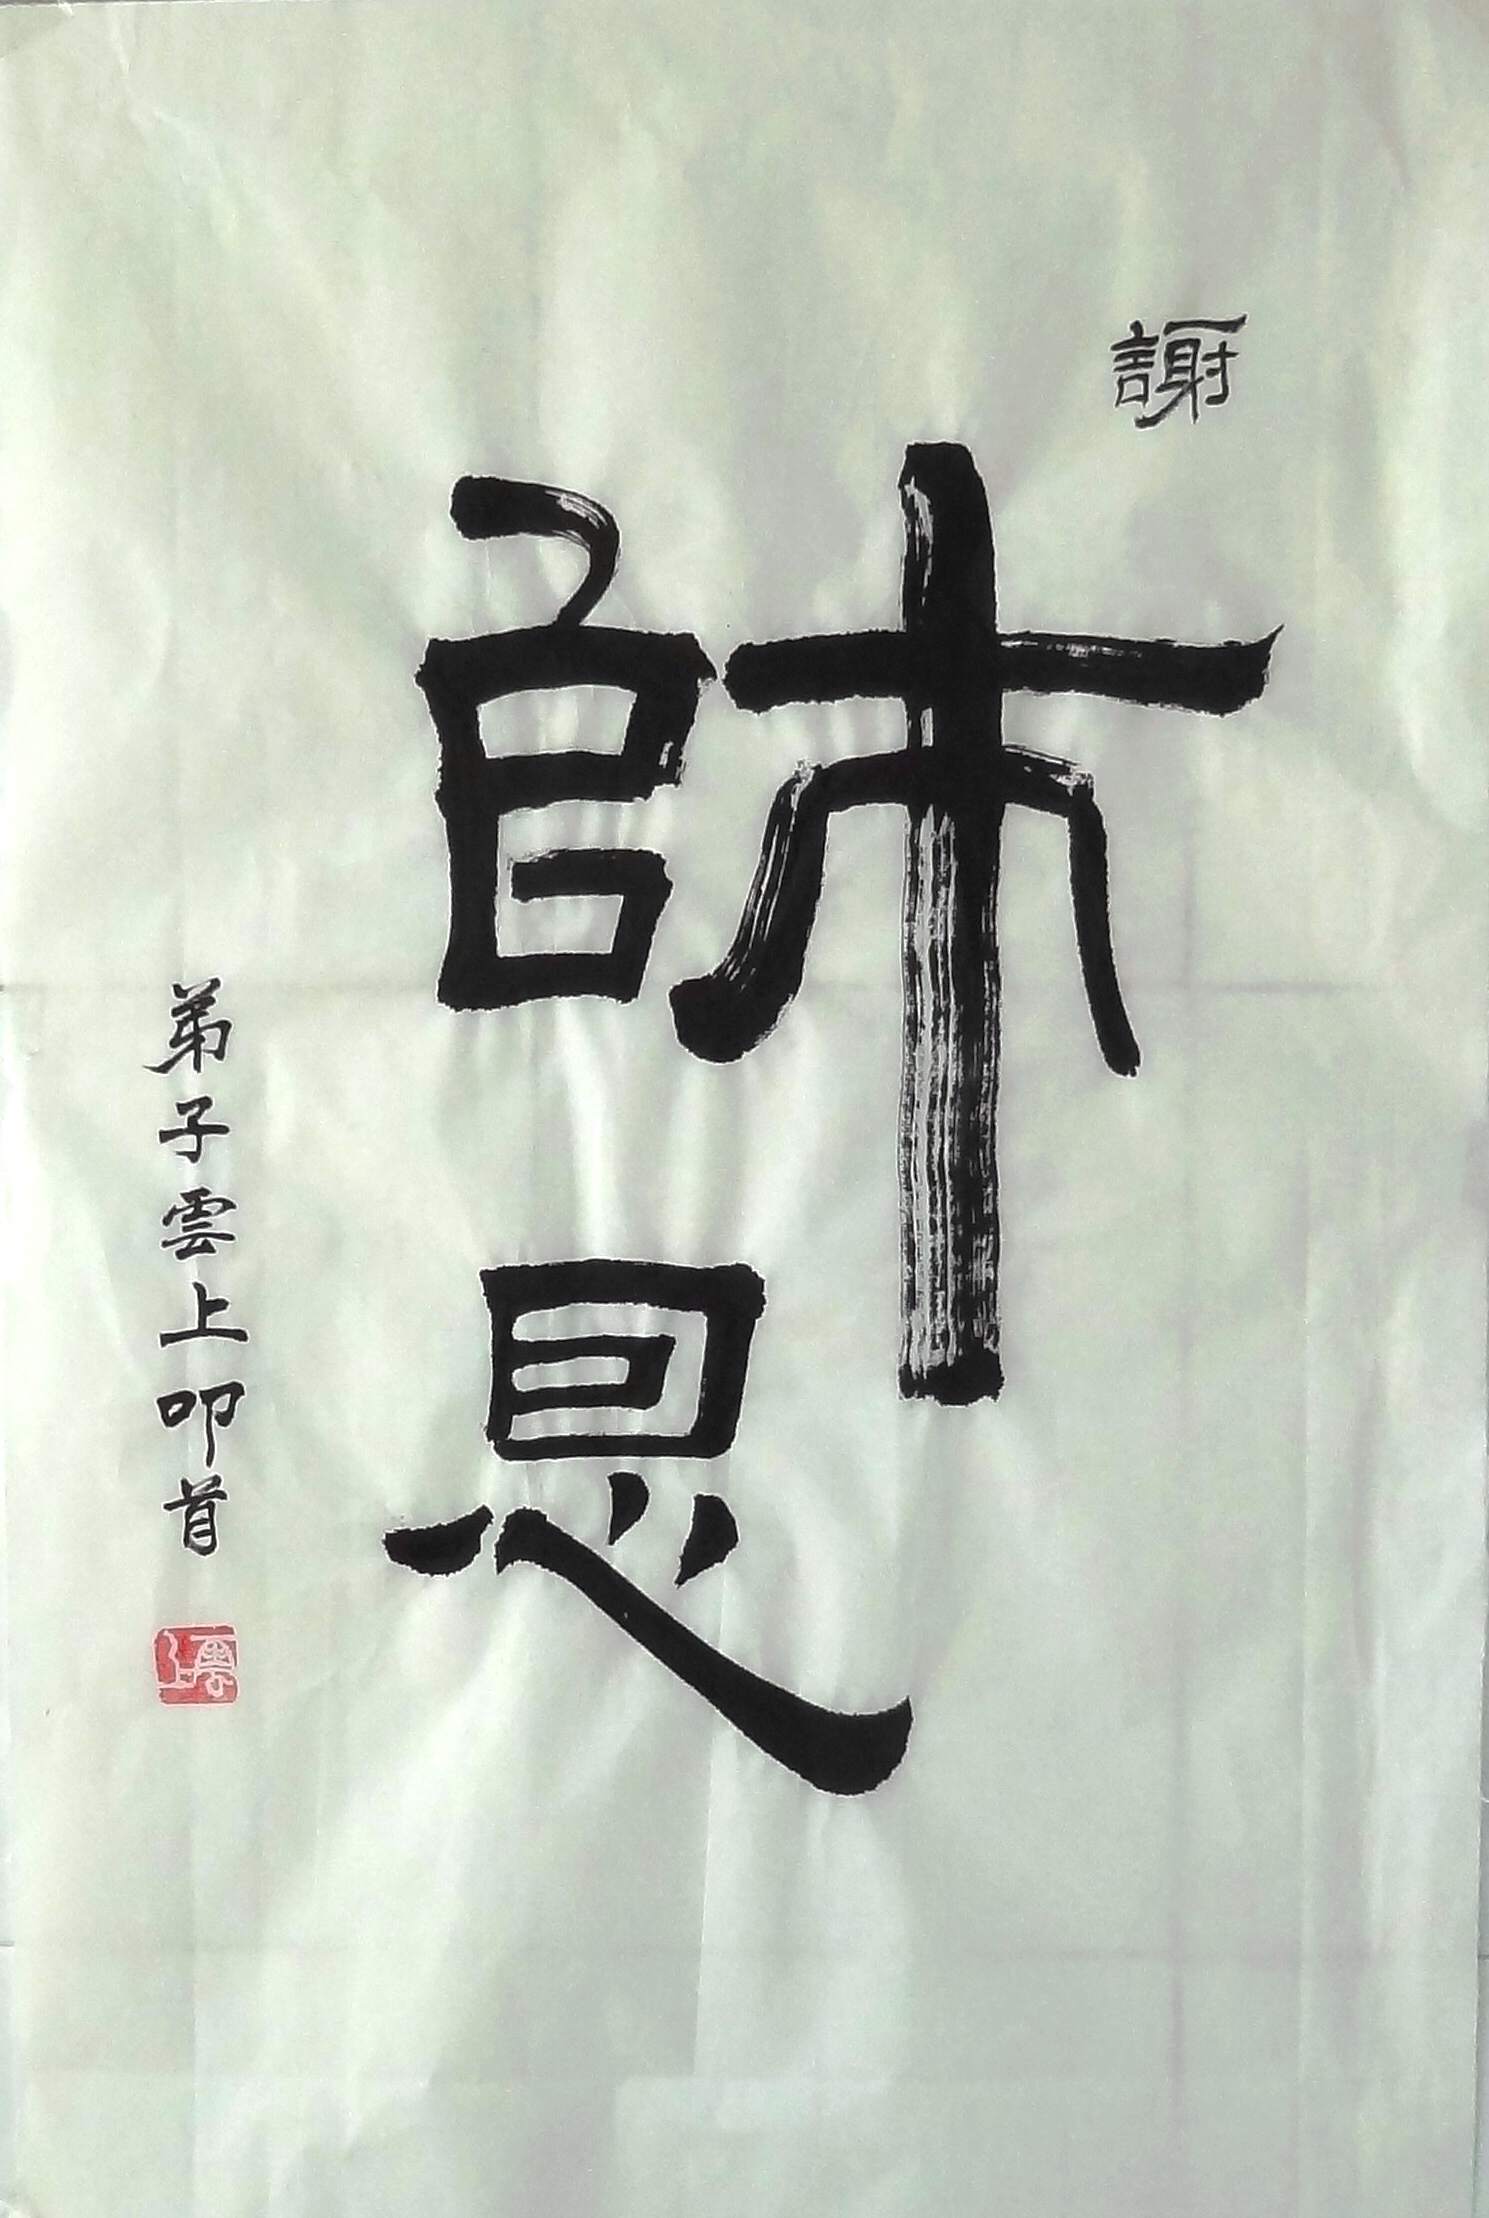 謝
師恩
弟子雲上叩首